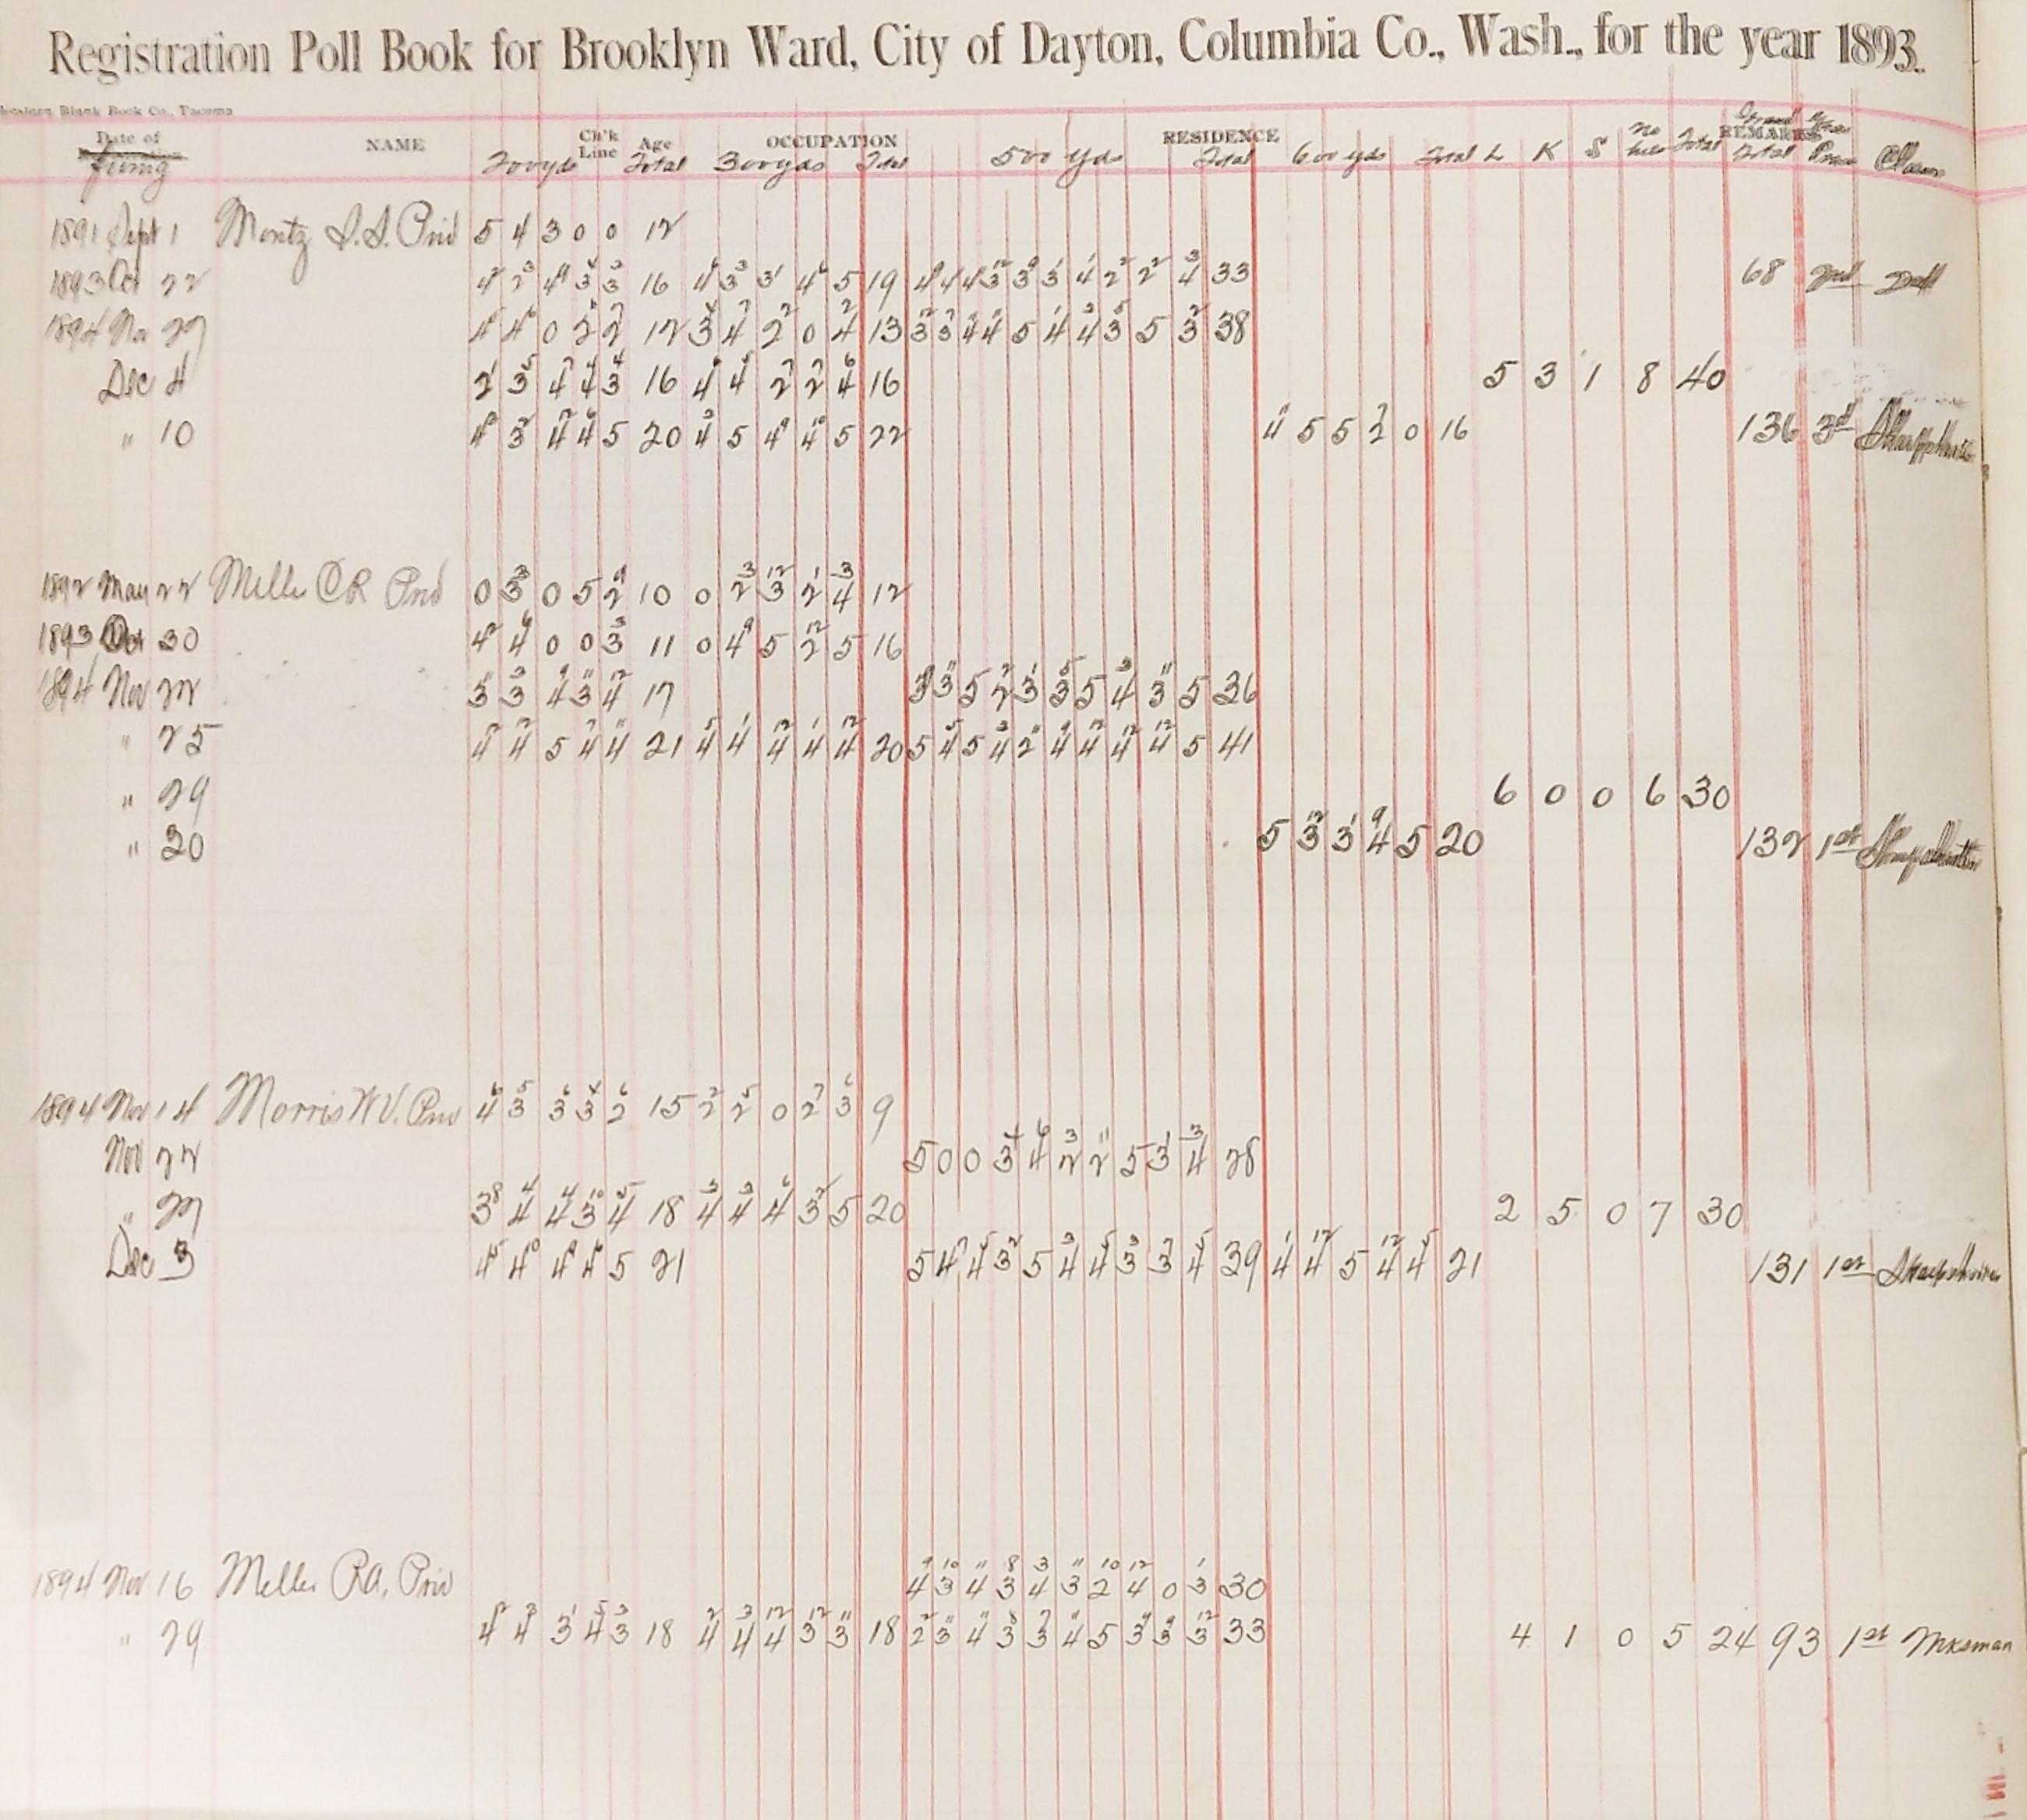 Registration Poll Book for Brooklyn Ward, City of Dayton, Columbia Co., Wash., for the year 1893.
Blank Book Co., Tacoma
Date of NAME Ch'k Line Age OCCUPATION RESIDENCE REMARKS
firing 200 yds Total 300 yds Total 500 yds Total 600 yds Total L K S No hits Total Grand Total Class
1891 Sept 1 Mentz S.S. Priv 5 4 3 0 0 12
1893 Oct 22 4 2 4 3 3 16 4 3 3 4 5 19 4 4 4 3 3 3 4 2 2 4 33 68 2nd
1894 No 27 4 4 0 2 2 12 3 4 2 0 4 13 3 3 4 4 5 4 4 3 5 3 38
Dec 4 2 3 4 4 3 16 4 4 2 2 4 16 5 3 1 8 40
" 10 4 3 4 4 5 20 4 5 4 4 5 22 4 5 5 2 0 16 136 3d Sharpshooter
1892 May 22 Miller C R Priv 0 3 0 5 2 10 0 2 3 2 4 12
1893 Oct 30 4 4 0 0 3 11 0 4 5 2 5 16
1894 Nov 22 3 3 4 3 4 17 3 3 5 2 3 3 5 4 3 5 36
" 25 4 4 5 4 4 21 4 4 4 4 4 20 5 4 5 4 2 4 4 4 4 5 41
" 29 6 0 0 6 30
" 30 5 3 3 4 5 20 132 1st Sharpshooter
1894 Nov 14 Morris W V. Priv 4 3 3 3 2 15 2 2 0 2 3 9
Nov 22 5 0 0 3 4 2 2 5 3 4 28
" 27 3 4 4 3 4 18 4 4 4 3 5 20 2 5 0 7 30
Dec 3 4 4 4 4 5 21 5 4 4 3 5 4 4 3 3 4 39 4 4 5 4 4 21 131 1st Sharpshooter
1894 Nov 16 Miller R A, Priv 4 3 4 3 4 3 2 4 0 3 30
" 29 4 4 3 4 3 18 4 4 4 3 3 18 2 3 4 3 3 4 5 3 3 3 33 4 1 0 5 24 93 1st Mksman